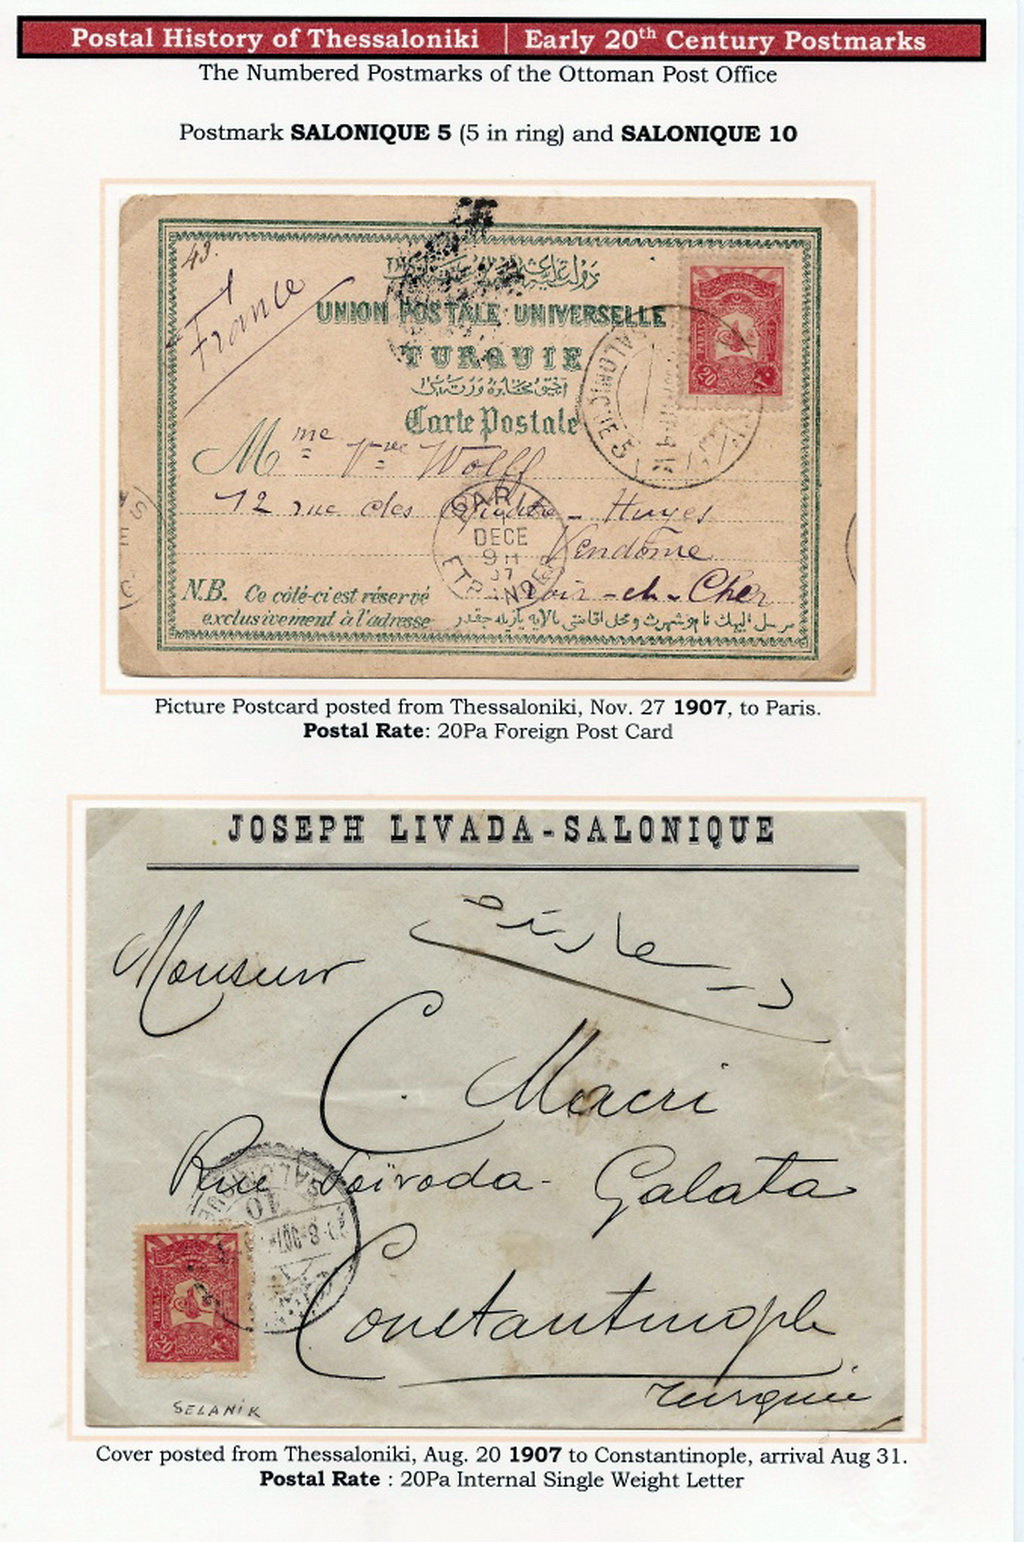 Postal History of Thessaloniki | Early 20th Century Postmarks
The Numbered Postmarks of the Ottoman Post Office
Postmark SALONIQUE 5 (5 in ring) and SALONIQUE 10
43.
France
UNION POSTALE UNIVERSELLE
TURQUIE
Carte Postale
SALONIQUE 5
20
Mme Vve Wolff
12 rue des - Huyes
Vendôme
Loir-et-Cher
PARIS
DECE
9
07
ETRANGER
N.B. Ce côté-ci est réservé
exclusivement à l'adresse
Picture Postcard posted from Thessaloniki, Nov. 27 1907, to Paris.
Postal Rate: 20Pa Foreign Post Card
JOSEPH LIVADA-SALONIQUE
در سعادت
Monsieur
C. Macri
Rue Voïvoda - Galata
SALONIQUE
10
Constantinople
20
Turquie
SELANİK
Cover posted from Thessaloniki, Aug. 20 1907 to Constantinople, arrival Aug 31.
Postal Rate : 20Pa Internal Single Weight Letter